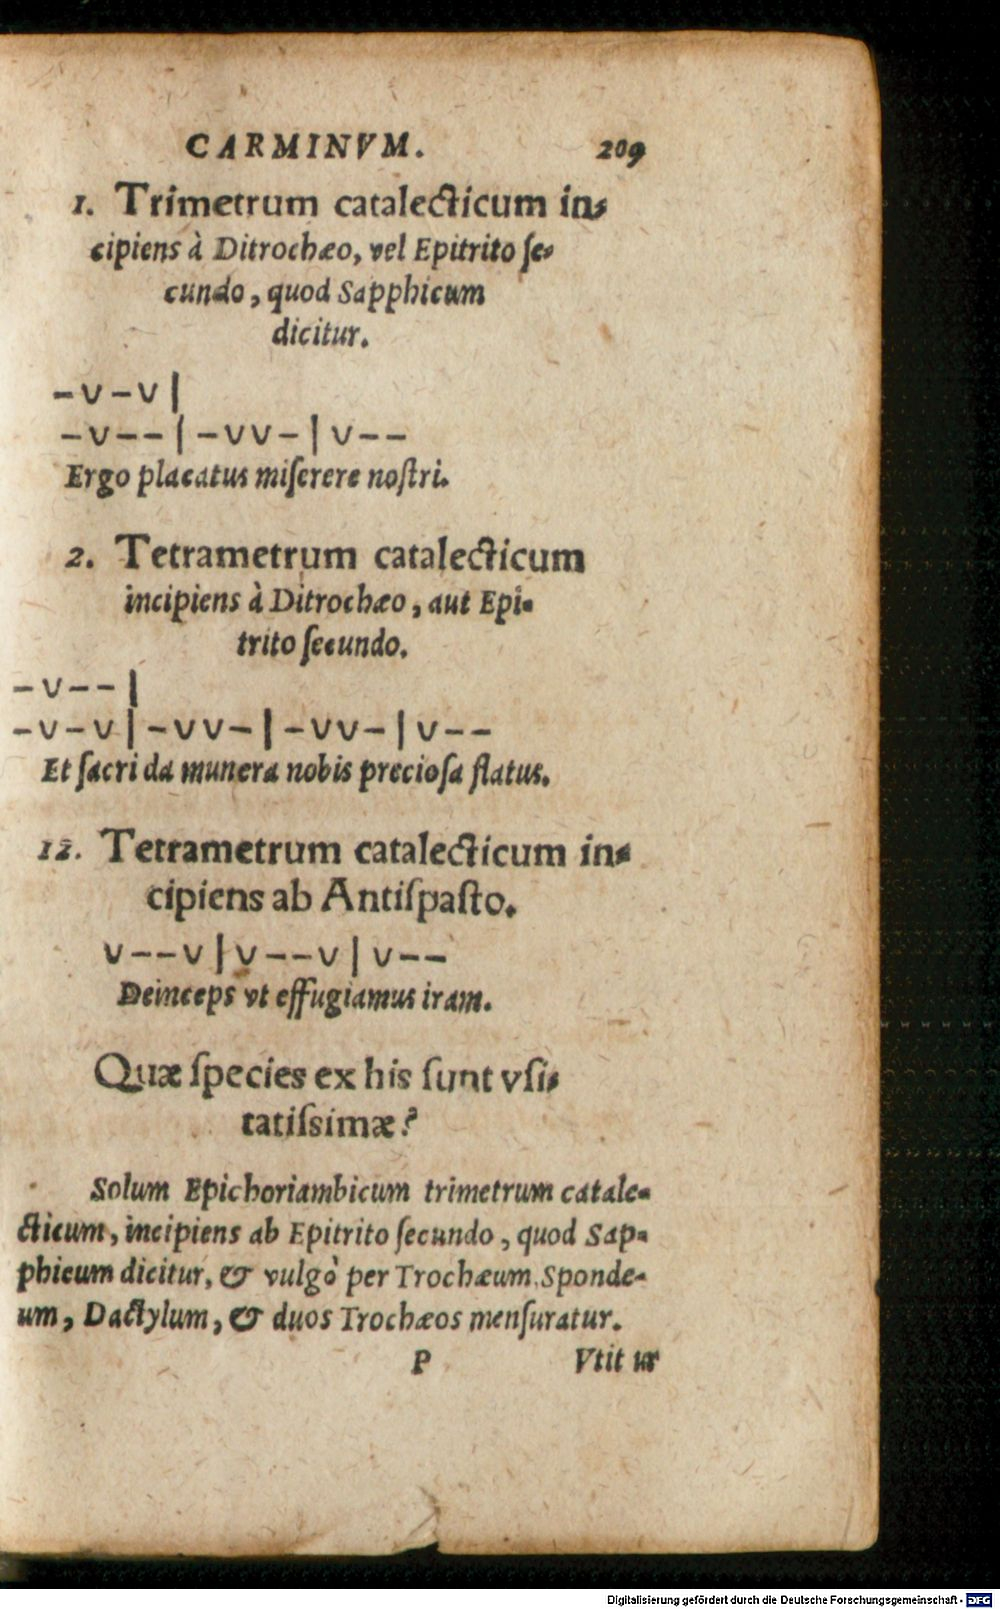 CARMINVM. 209
1. Trimetrum catalecticum in-
cipiens à Ditrochæo, vel Epitrito ſe-
cundo, quod Sapphicum
dicitur.
–v–v|
–v––|–vv–|v––
Ergo placatus miſerere noſtri.
2. Tetrametrum catalecticum
incipiens à Ditrochæo, aut Epi-
trito ſecundo.
–v––|
–v–v|–vv–|–vv–|v––
Et ſacri da munera nobis precioſa flatus.
12. Tetrametrum catalecticum in-
cipiens ab Antiſpaſto.
v––v|v––v|v––
Deinceps vt effugiamus iram.
Quæ ſpecies ex his ſunt vſi-
tatiſsimæ?
Solum Epichoriambicum trimetrum catale-
cticum, incipiens ab Epitrito ſecundo, quod Sap-
phicum dicitur, & vulgò per Trochæum, Sponde-
um, Dactylum, & duos Trochæos menſuratur.
P Vtitur
Digitalisierung gefördert durch die Deutsche Forschungsgemeinschaft - DFG